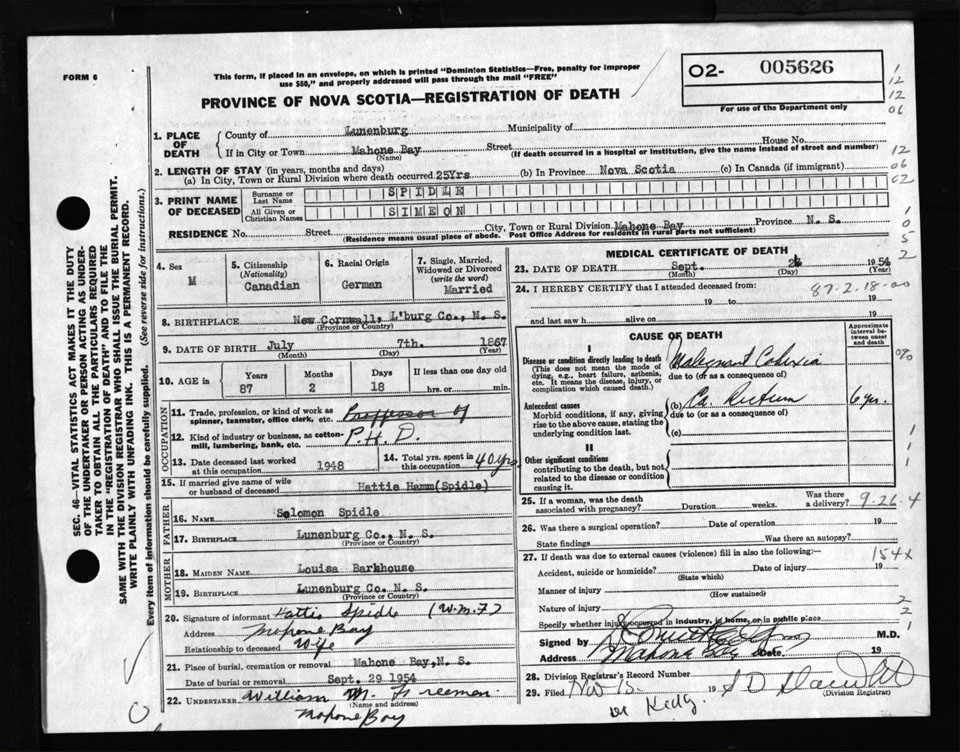 FORM 6
This form, if placed in an envelope, on which is printed "Dominion Statistics—Free, penalty for improper
use $50," and properly addressed will pass through the mail "FREE"
PROVINCE OF NOVA SCOTIA—REGISTRATION OF DEATH
O2- 005626
For use of the Department only
1
12
12
06
12
06
02
1
0
5
2
SEC. 46—VITAL STATISTICS ACT MAKES IT THE DUTY
OF THE UNDERTAKER OR PERSON ACTING AS UNDER-
TAKER TO OBTAIN ALL THE PARTICULARS REQUIRED
IN THE "REGISTRATION OF DEATH" AND TO FILE THE
SAME WITH THE DIVISION REGISTRAR WHO SHALL ISSUE THE BURIAL PERMIT.
WRITE PLAINLY WITH UNFADING INK. THIS IS A PERMANENT RECORD.
Every item of information should be carefully supplied. (See reverse side for instructions.)
1. PLACE OF DEATH
County of Lunenburg Municipality of
If in City or Town Mahone Bay Street House No.
(Name) (If death occurred in a hospital or institution, give the name instead of street and number)
2. LENGTH OF STAY (in years, months and days)
(a) In City, Town or Rural Division where death occurred 25Yrs (b) In Province Nova Scotia (c) In Canada (if immigrant)
3. PRINT NAME OF DECEASED
Surname or Last Name SPIDLE
All Given or Christian Names SIMEON
RESIDENCE No. Street City, Town or Rural Division Mahone Bay Province N. S.
(Residence means usual place of abode. Post Office Address for residents in rural parts not sufficient)
4. Sex
M
5. Citizenship
(Nationality)
Canadian
6. Racial Origin
German
7. Single, Married,
Widowed or Divorced
(write the word)
Married
8. BIRTHPLACE New Cornwall, L'burg Co., N. S.
(Province or Country)
9. DATE OF BIRTH July 7th. 1867
(Month) (Day) (Year)
10. AGE in
Years Months Days If less than one day old
87 2 18 hrs. or min.
OCCUPATION
11. Trade, profession, or kind of work as
spinner, teamster, office clerk, etc. Proffesor of
12. Kind of industry or business, as cotton-
mill, lumbering, bank, etc. P.H.D.
13. Date deceased last worked
at this occupation 1948
14. Total yrs. spent in
this occupation 40 yrs
15. If married give name of wife
or husband of deceased Hattie Hamm(Spidle)
FATHER
16. NAME Solomon Spidle
17. BIRTHPLACE Lunenburg Co., N. S.
(Province or Country)
MOTHER
18. MAIDEN NAME Louisa Barkhouse
19. BIRTHPLACE Lunenburg Co. N. S.
(Province or Country)
20. Signature of informant Hattie Spidle (W.M.F)
Address Mahone Bay
Relationship to deceased Wife
21. Place of burial, cremation or removal Mahone Bay, N. S.
Date of burial or removal Sept. 29 1954
22. UNDERTAKER William M. Freeman
(Name and address)
Mahone Bay
MEDICAL CERTIFICATE OF DEATH
23. DATE OF DEATH Sept. 26 1954
(Month) (Day) (Year)
24. I HEREBY CERTIFY that I attended deceased from: 87-2-18-00
19 to 19
and last saw h alive on 19
CAUSE OF DEATH
Approximate interval between onset and death
I
Disease or condition directly leading to death
(This does not mean the mode of
dying, e.g., heart failure, asthenia,
etc. It means the disease, injury, or
complication which caused death.)
Malignant Cachexia
due to (or as a consequence of)
Antecedent causes
Morbid conditions, if any, giving
rise to the above cause, stating the
underlying condition last.
(b) Ca. Rectum 6 yrs.
due to (or as a consequence of)
(c)
II
Other significant conditions
contributing to the death, but not
related to the disease or condition
causing it.
1
1
25. If a woman, was the death
associated with pregnancy? Duration weeks. Was there
a delivery? 9-26-4
26. Was there a surgical operation? Date of operation 19
State findings Was there an autopsy?
27. If death was due to external causes (violence) fill in also the following:— 154X
Accident, suicide or homicide? Date of injury 19
(State which)
Manner of injury
(How sustained)
Nature of injury 2
2
Specify whether injury occurred in industry, in home, or in public place
1
Signed by M.D.
Address Mahone Bay Date 19
28. Division Registrar's Record Number
29. Filed Nov 15 19
(Division Registrar)